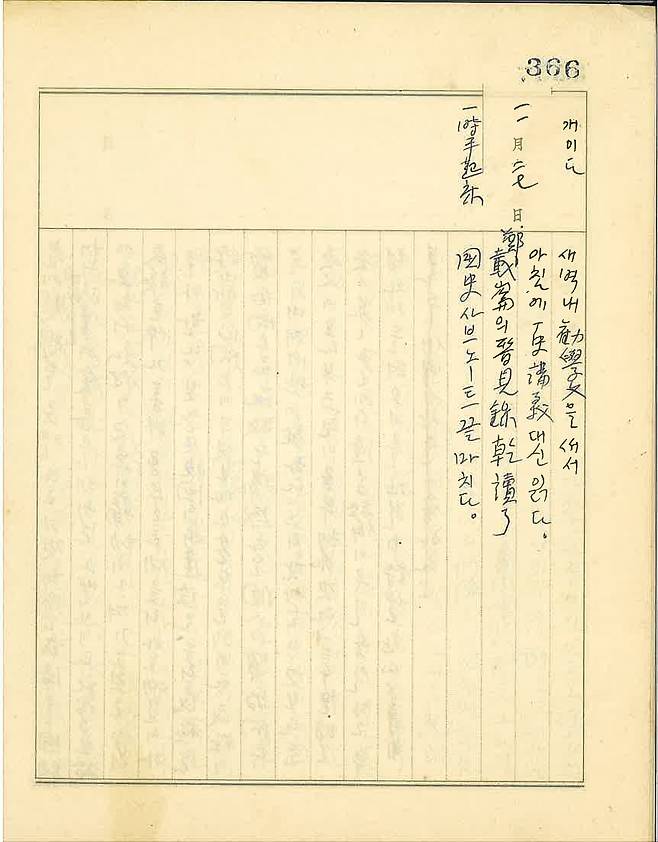 366
개이다
一一月二七日
一時半起床
새벽내 勸學을 새서
아침에 史講義 대신 읽다。
鄭載崙의 見錄 乾 讀了
國史 사브노ー트 끝마치다。